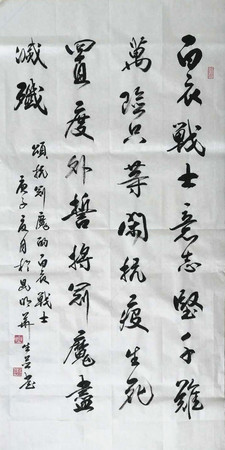 百衣戰士意志堅千難
萬險只等閑抗疫生死
置度外誓將冠魔盡
滅殲
頌抗冠魔的百衣戰士
庚子夏月於昆明華生